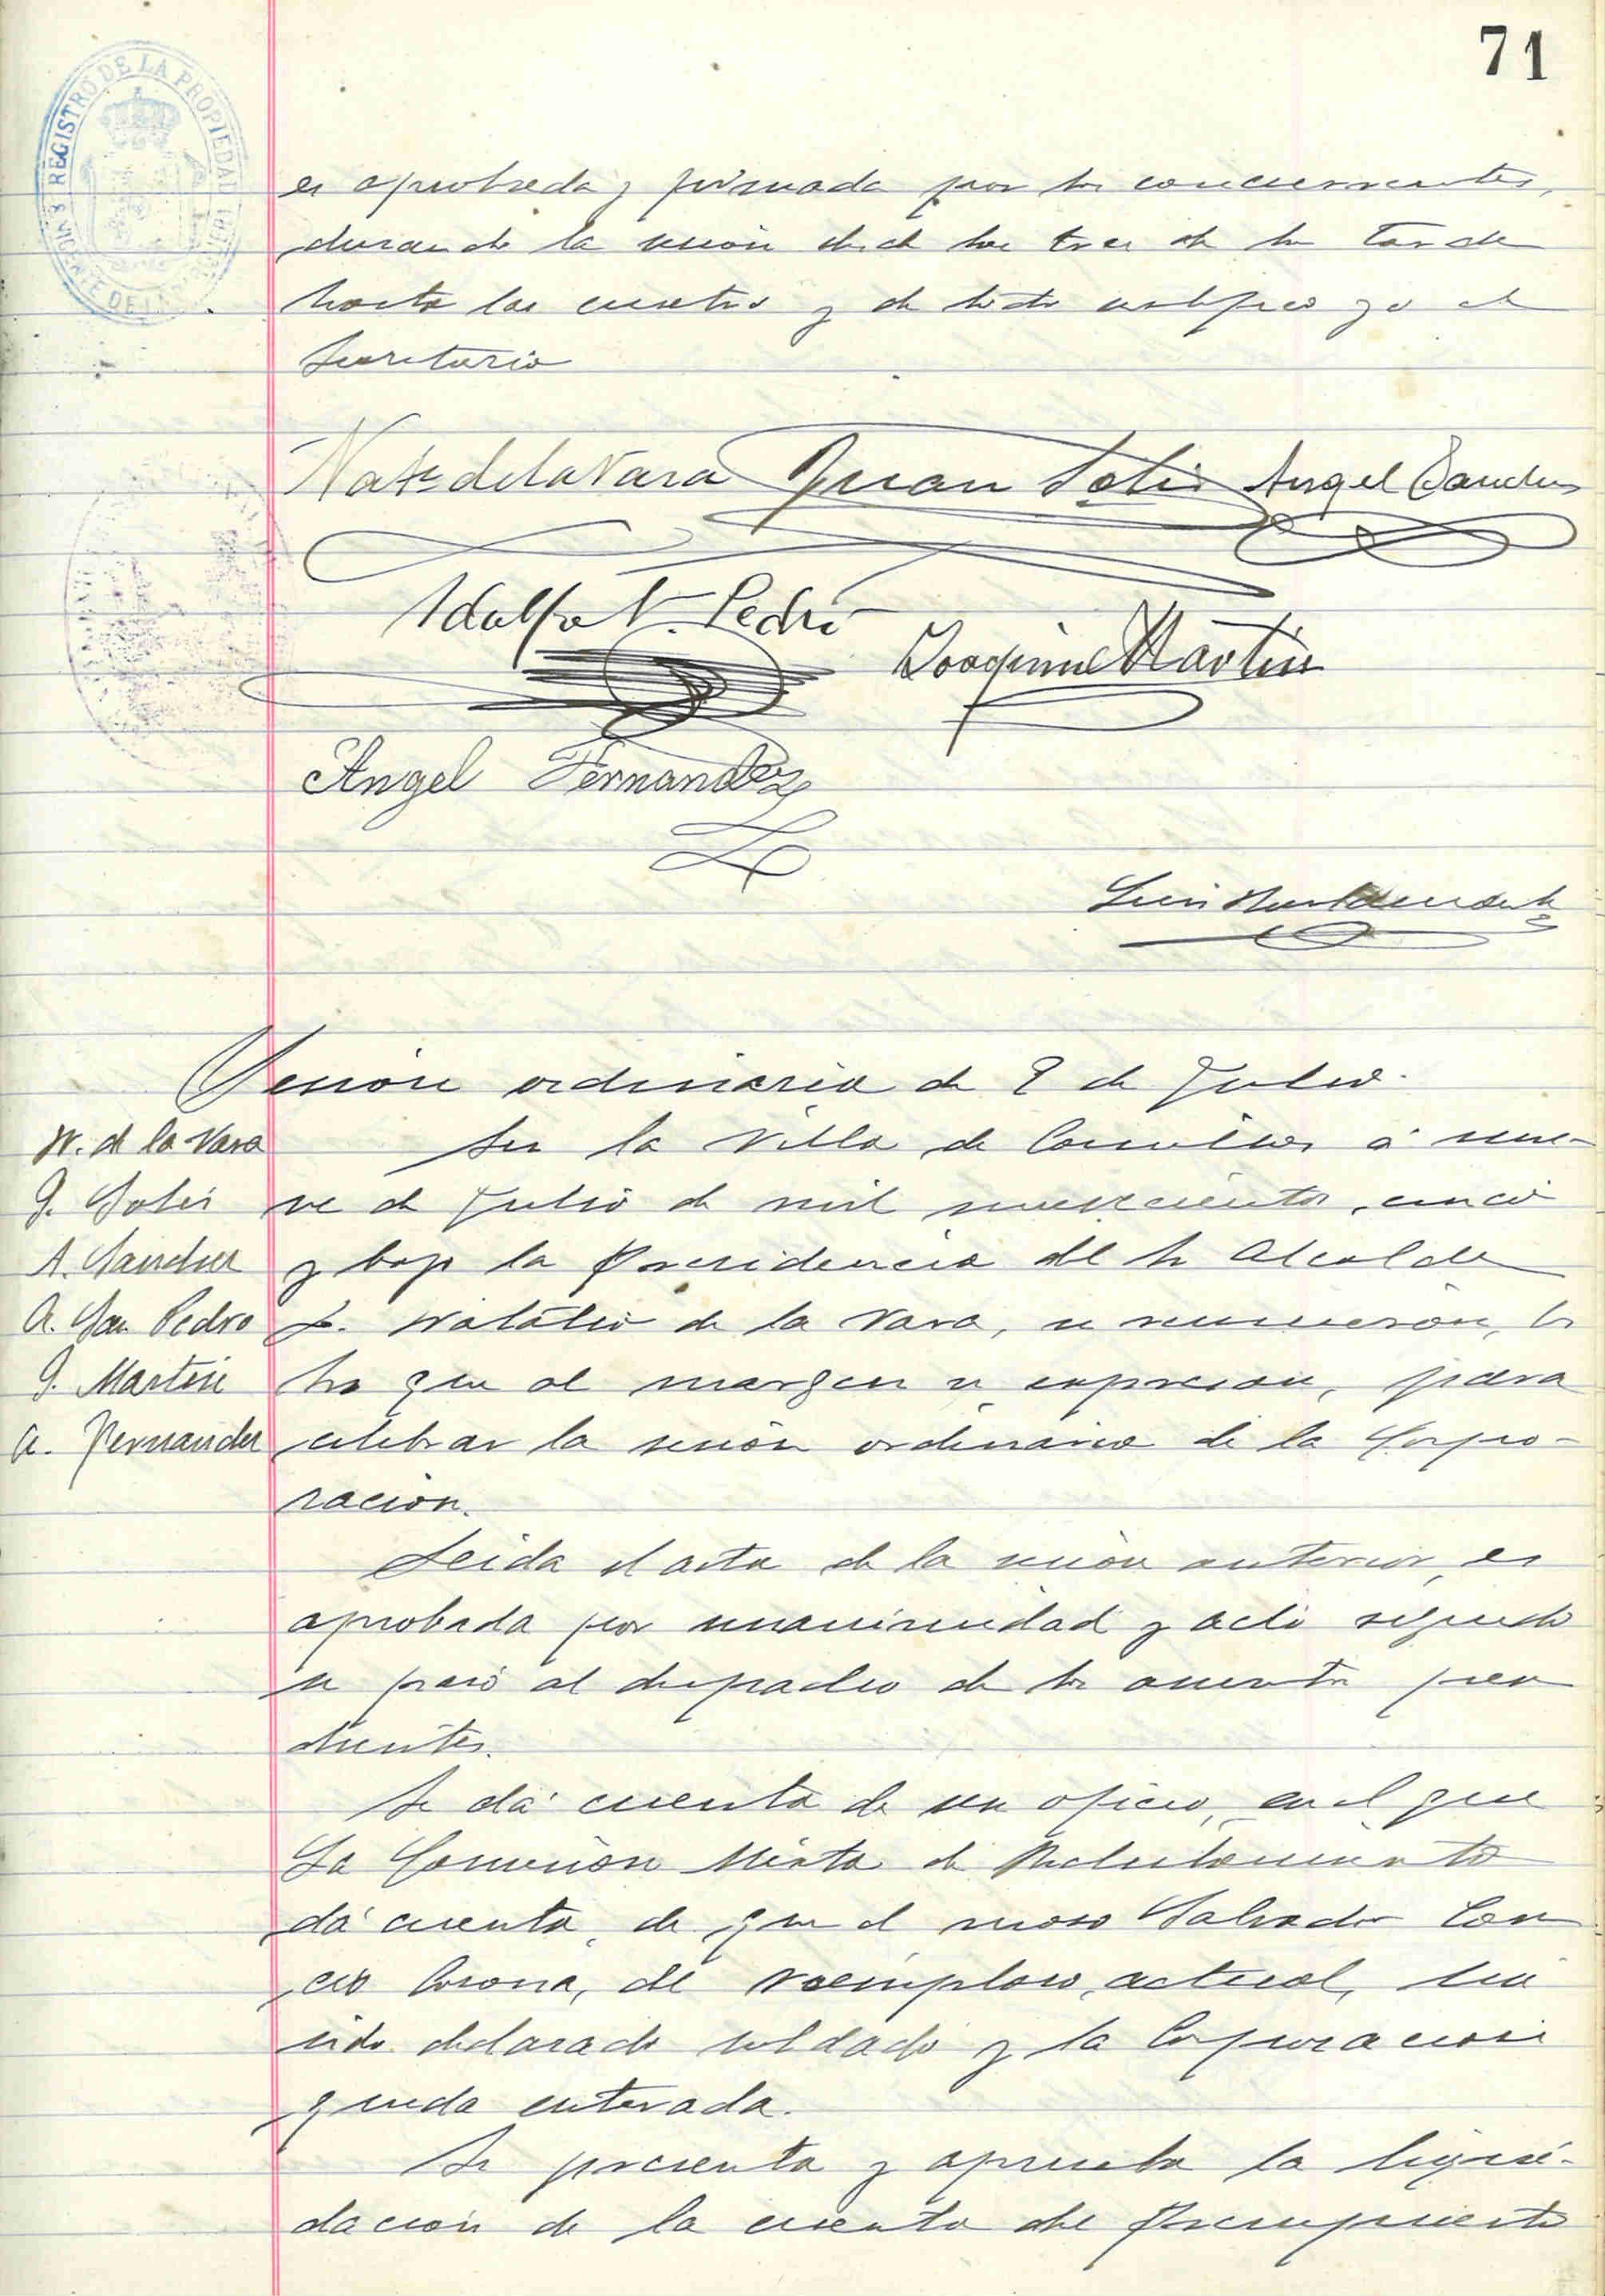 71
REGISTRO DE LA PROPIEDAD
es aprobada y firmada por los concurrentes,
durando la sesión desde las tres de la tarde
hasta las cuatro y de todo certifico yo el
Secretario
Nat.º de la Vara Juan Solis Angel Sanchez
Adolfo S. Pedro
Joaquin Martin
Angel Fernandez
Luis
Sesión ordinaria de 9 de Julio.
N. de la Vara
J. Solis
A. Sanchez
A. San Pedro
J. Martin
A. Fernandez
En la Villa de á nue-
ve de Julio de mil novecientos cinco
y bajo la Presidencia del Sr Alcalde
D. Natalio de la Vara, se reunieron, los
Sres que al margen se expresan, para
celebrar la sesión ordinaria de la Corpo-
ración.
Leida el acta de la sesión anterior, es
aprobada por unanimidad y acto seguido
se pasó al despacho de los asuntos pen
dientes.
Se dá cuenta de un oficio, en el que
La Comisión Mixta de Reclutamiento
dá cuenta, de que el mozo Salvador
Corona, del reemplazo actual, há
sido declarado soldado y la Corporación
queda enterada.
Se presenta y aprueba la liqui-
dación de la cuenta del Presupuesto